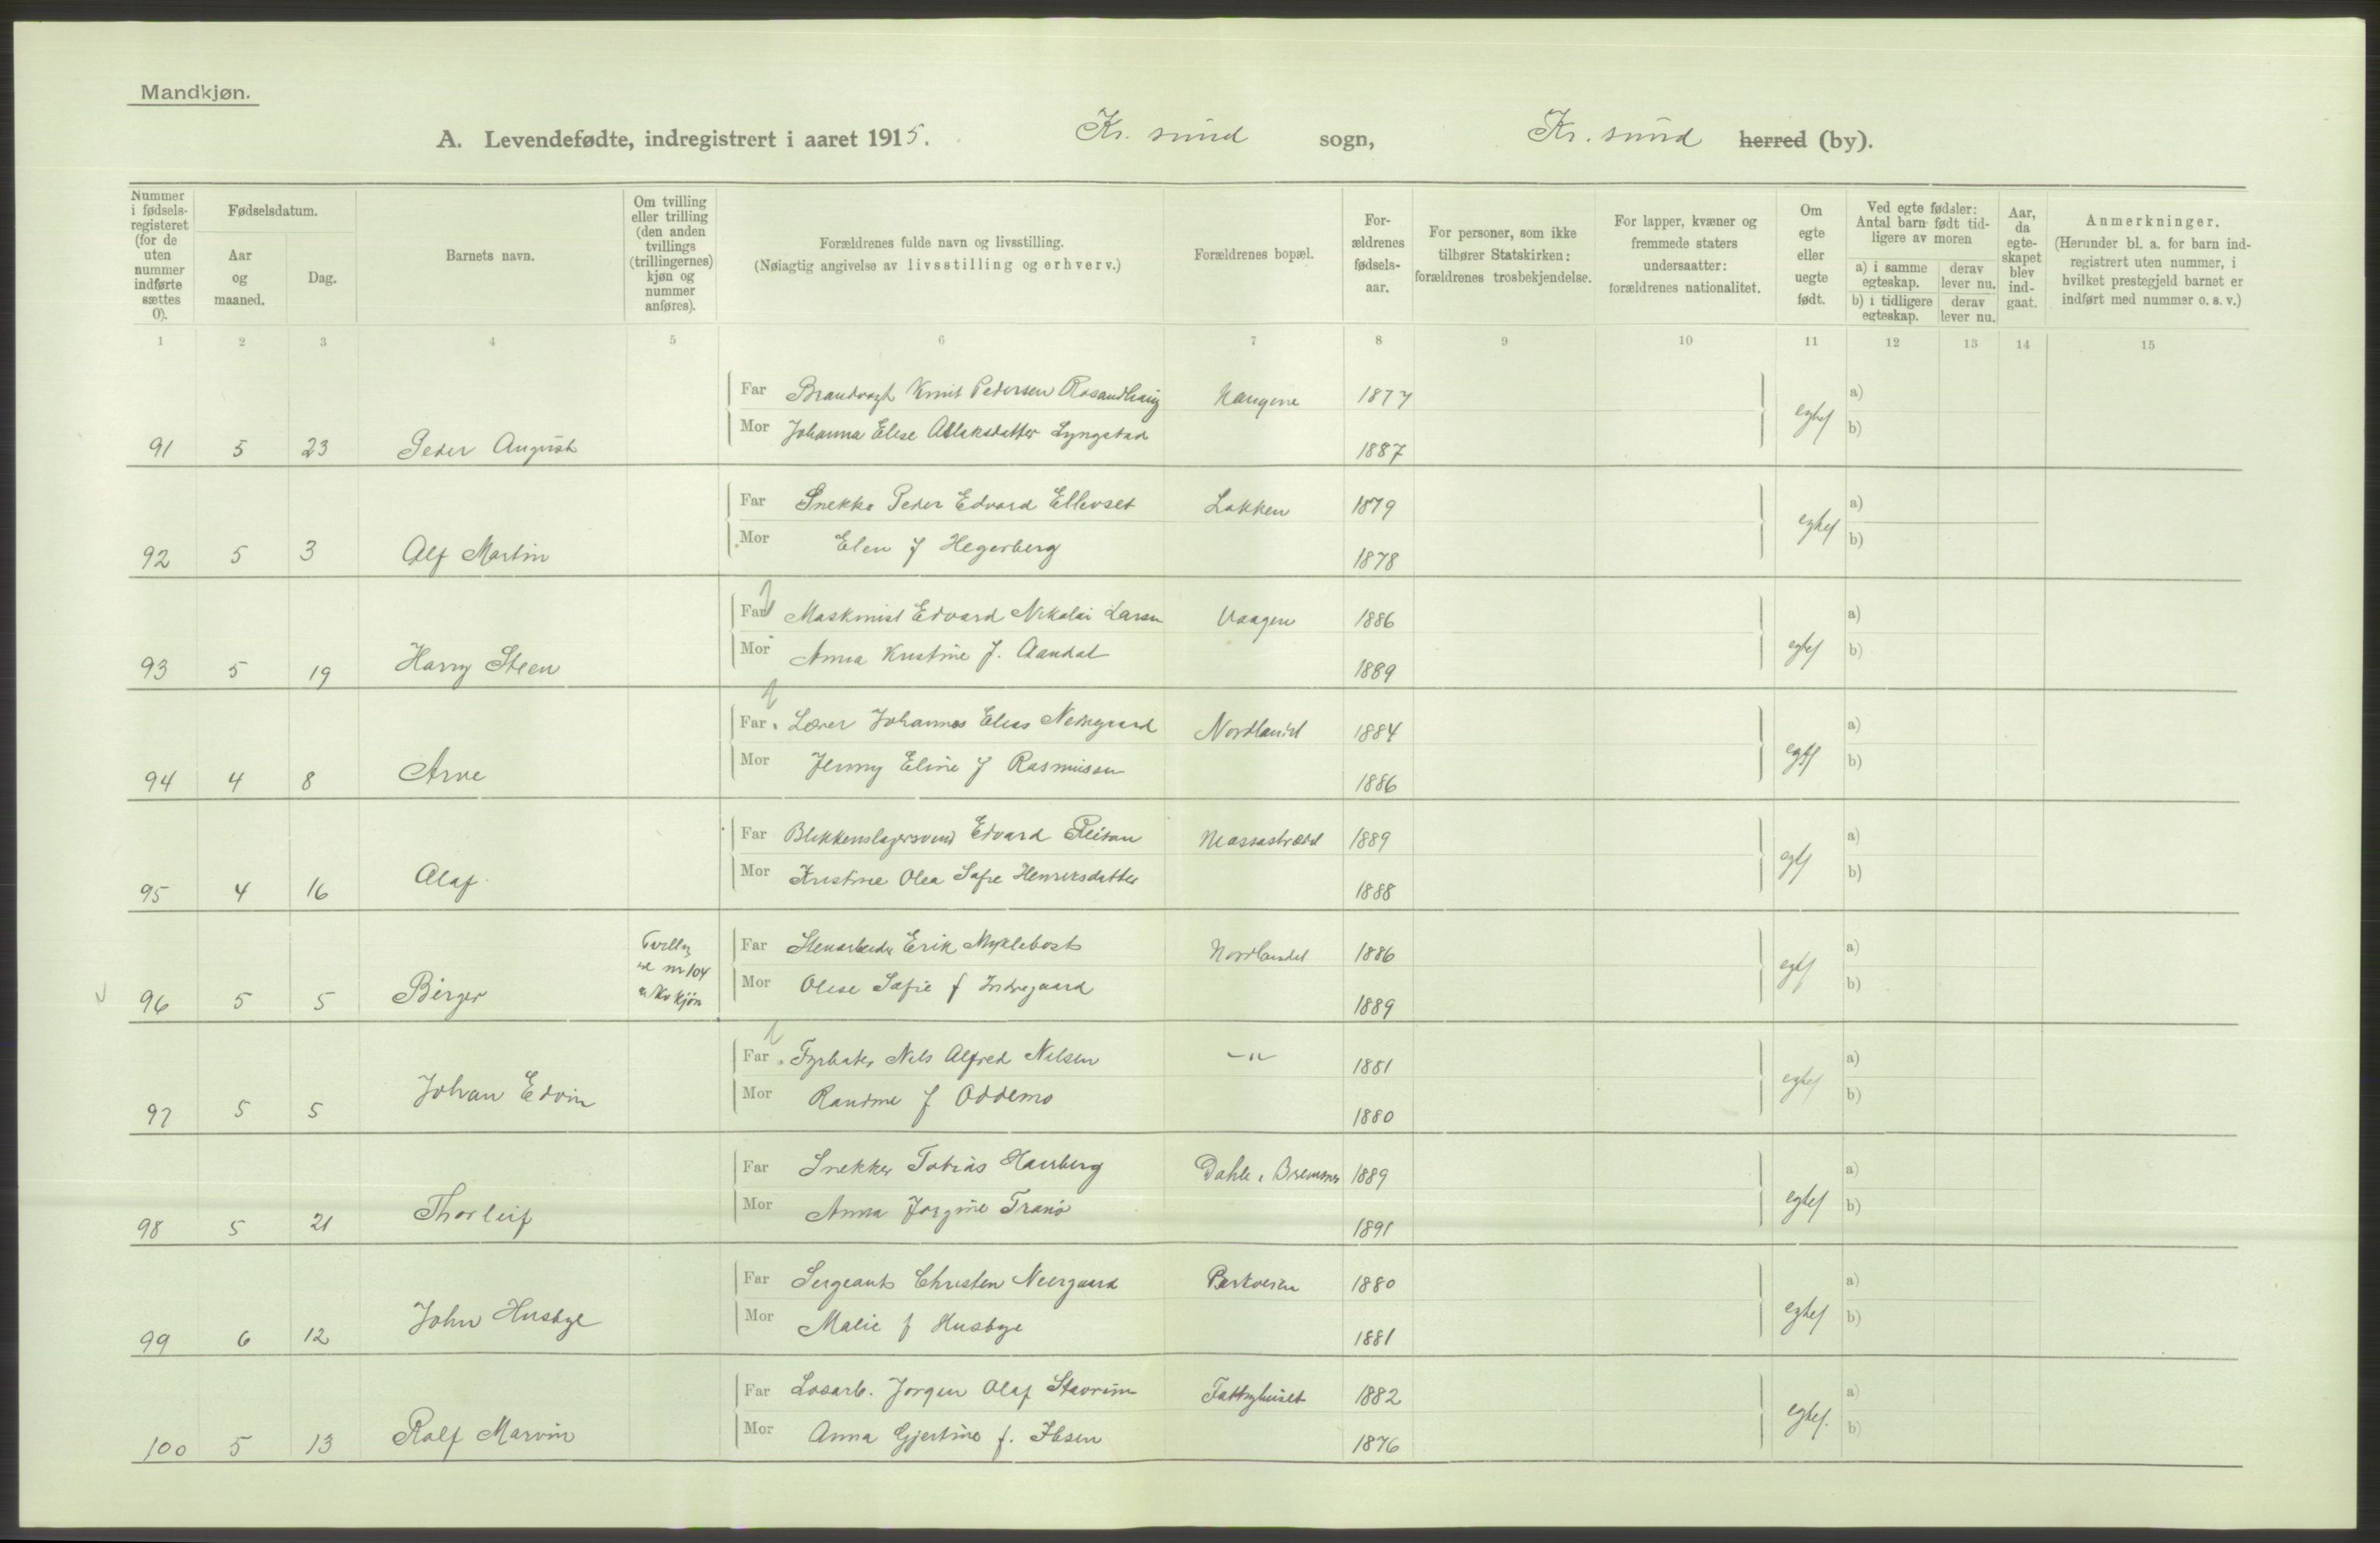 Mandkjøn.
A. Levendefødte, indregistrert i aaret 1915. Kr. sund sogn, Kr. sund herred (by).
Nummer i fødselsregisteret (for de uten nummer indførte sættes 0).
Fødselsdatum.
Aar og maaned.
Dag.
Barnets navn.
Om tvilling eller trilling (den anden tvillings (trillingernes) kjøn og nummer anføres).
Forældrenes fulde navn og livsstilling.
(Nøiagtig angivelse av livsstilling og erhverv.)
Forældrenes bopæl.
Forældrenes fødselsaar.
For personer, som ikke tilhører Statskirken: forældrenes trosbekjendelse.
For lapper, kvæner og fremmede staters undersaatter: forældrenes nationalitet.
Om egte eller uegte født.
Ved egte fødsler: Antal barn født tidligere av moren
a) i samme egteskap.
derav lever nu.
b) i tidligere egteskap.
derav lever nu.
Aar, da egteskapet blev indgaat.
Anmerkninger.
(Herunder bl. a. for barn indregistrert uten nummer, i hvilket prestegjeld barnet er indført med nummer o. s. v.)
1 2 3 4 5 6 7 8 9 10 11 12 13 14 15
Far Brandvagt Knut Pedersen Rosandhaug Haugene 1877 a)
Mor Johanna Elise Aslaksdatter Lyngstad egtef b)
91 5 23 Peder August 1887
Far Snekker Peder Edvard Ellevset Løkken 1879 a)
Mor Elen f Hegerberg egtef b)
92 5 3 Alf Martin 1878
Far Maskinist Edvard Nikolai Larsen Vaagen 1886 a)
Mor Anna Kristine f. Aandal egtef b)
93 5 19 Harry Steen 1889
Far Lærer Johannes Elias Nedregaard Nordlandet 1884 a)
Mor Jenny Eline f Rasmussen egtf b)
94 4 8 Arne 1886
Far Blikkenslagersvend Edvard Reitan Massastrædet 1889 a)
Mor Kristine Olea Sofie Henriksdatter egtf b)
95 4 16 Olaf 1888
Far Stenarbeider Erik Myklebost Nordlandet 1886 a)
Mor Olise Sofie f Indregaard egtf b)
96 5 5 Birger Tvilling nr 104 Kvkjøn 1889
Far Fyrbøter Nils Alfred Nilsen -"- 1881 a)
Mor Randine f Oddemo egtef b)
97 5 5 Johan Edvin 1880
Far Snekker Tobias Hauberg Dahle, Bremsnes 1889 a)
Mor Anna Jørgine Tranø egtef b)
98 5 21 Thorleif 1891
Far Sergeant Christen Neergaard Parkveien 1880 a)
Mor Malie f Husbye egtef b)
99 6 12 John Husbye 1881
Far Løsarb. Jørgen Olaf Stavrum Fattighuset 1882 a)
Mor Anna Gjertine f. Ibsen egtef. b)
100 5 13 Rolf Marvin 1876